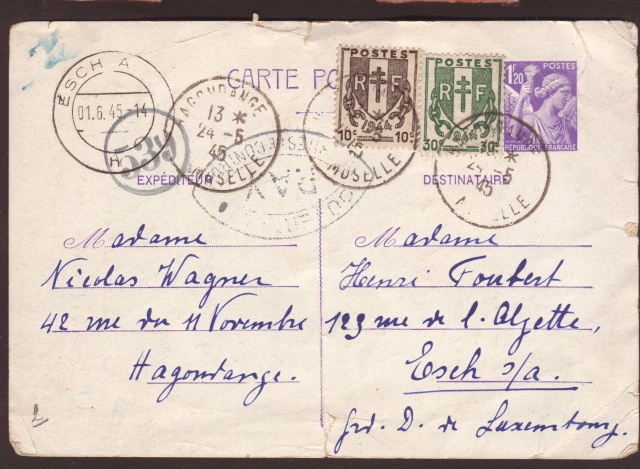 CARTE PO
POSTES
RF
1944
10c 10c
POSTES
RF
1944
30c 30c
1F20 POSTES
RÉPUBLIQUE FRANÇAISE
ESCH A
01.6.45-14
H
HAGONDANGE
13 *
24-5
45
MOSELLE
45
MOSELLE
*
24-5
45
MOSELLE
539
EXPÉDITEUR
DESTINATAIRE
Madame
Nicolas Wagner
42 rue du 11 Novembre
Hagondange.
Madame
Henri Foubert
123 rue de l'Alzette,
Esch s/a.
grd. D. de Luxembourg.
2